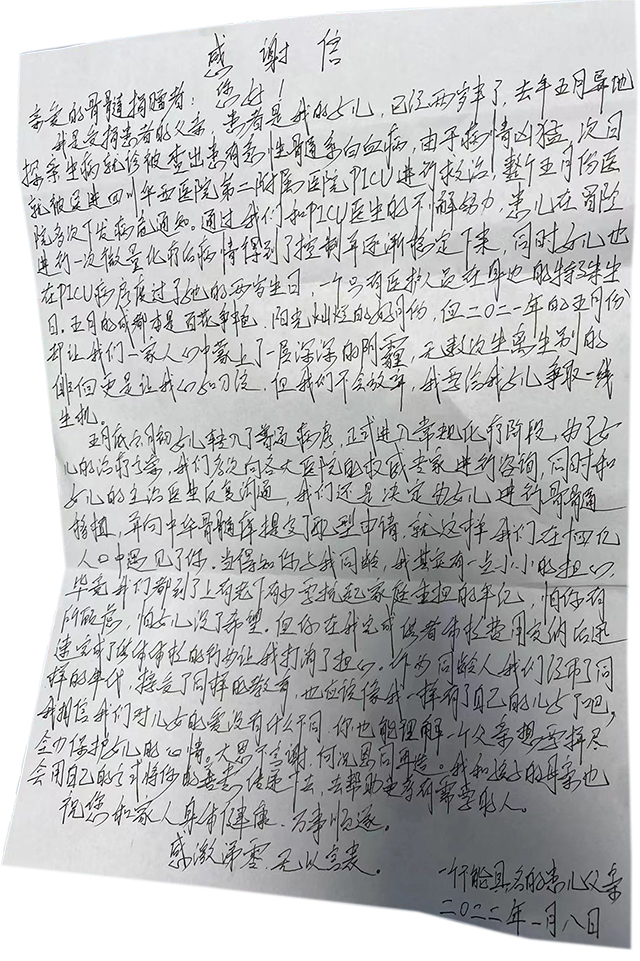 感谢信
亲爱的骨髓捐赠者：您好！
我是受捐患者的父亲，患者是我的女儿，已经两岁半了，去年五月异地
探亲生病就诊被查出患有急性骨髓系白血病，由于病情凶猛，次日
就被送进四川华西医院第二附属医院PICU进行救治，整个五月份医
院多次下发病危通知。通过我们和PICU医生的不懈努力，患儿在冒险
进行一次微量化疗后病情得到了控制并逐渐稳定下来，同时女儿也
在PICU病房度过了她的两岁生日，一个只有医护人员在身边的特殊生
日。五月的成都本是百花争艳、阳光灿烂的好月份，但二〇二一年的五月份
却让我们一家人心中蒙上了一层深深的阴霾，无数次生离死别的
徘徊更是让我心如刀绞，但我们不会放弃，我要给我女儿争取一线
生机。
五月底六月初女儿转入了普通病房，正式进入常规化疗阶段，为了女
儿的治疗方案，我们多次向各大医院的权威专家进行咨询，同时和
女儿的主治医生反复沟通，我们还是决定为女儿进行骨髓
移植，并向中华骨髓库提交了配型申请，就这样我们在十四亿
人口中遇见了你。当得知你与我同龄，我其实有一点小小的担心，
毕竟我们都到了上有老下有小要扛起家庭重担的年纪，怕你有
所顾虑，怕女儿没了希望。但你在我完成供者体检费用交纳后迅
速完成了供体体检的행为让我打消了担心。作为同龄人我们经历了同
样的年代，接受了同样的教育，也应该像我一样有了自己的儿女了吧，
我相信我们对儿女的爱没有什么不同，你也能理解一个父亲想要拼尽
全力保护女儿的心情。大恩不言谢，何况恩同再造。我和孩子的母亲也
会用自己的方式将你的善意传递下去，去帮助更多有需要的人。
祝您和家人身体健康、万事顺遂。
感激涕零，无以言表。
一个不能具名的患儿父亲
二〇二二年一月八日